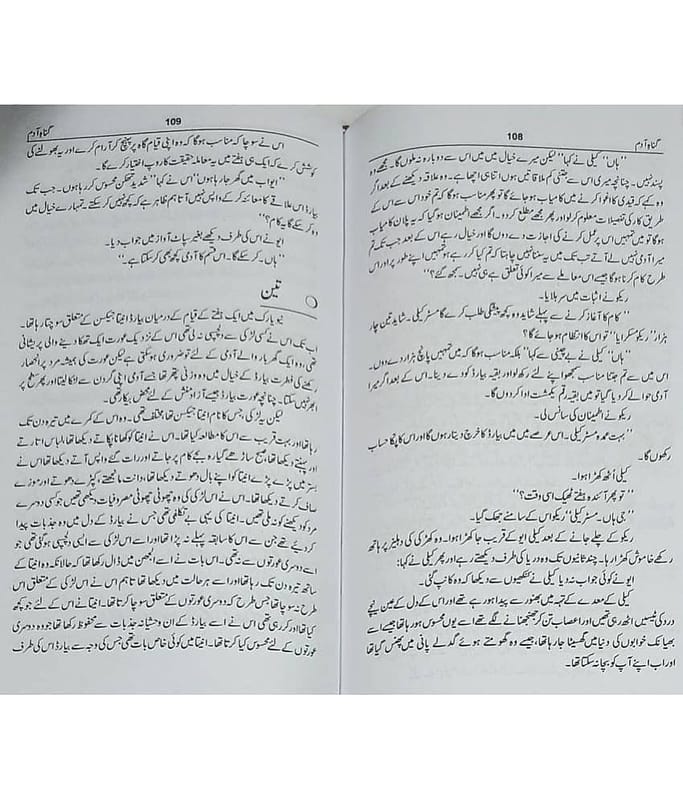 گناہ آدم
108
’’ہاں‘‘ کیلی نے کہا’’لیکن میرے خیال میں میں اس سے دوبارہ نہ ملوں گا۔ مجھے وہ
پسند نہیں۔ چنانچہ میری اس سے جتنی کم ملاقاتیں ہوں اتنا ہی اچھا ہے۔ وہ علاقہ دیکھنے کے بعد اگر
وہ کہے کہ قیدی کا اغوا کرنے میں کامیاب ہو جائے گا تو پھر مناسب ہو گا کہ تم خود اس سے اس کے
طریق کار کی تفصیلات معلوم کر لو اور پھر مجھے مطلع کر دو۔ اگر مجھے اطمینان ہو گیا کہ یہ پلان کامیاب
ہو گا تو میں تمہیں اس پر عمل کرنے کی اجازت دے دوں گا اور خیال رہے اس کے بعد جب تک تم
میرا آدمی نہ لے آتے تب تک میں یہ سننا نہیں چاہتا کہ تم کیا کر رہے ہو تمہیں اپنے طور پر اور اس
طرح کام کرنا ہو گا جیسے اس معاملے سے میرا کوئی تعلق ہے ہی نہیں۔ سمجھ گئے؟‘‘
ریکو نے اثبات میں سر ہلایا۔
’’کام کا آغاز کرنے سے پہلے شاید وہ کچھ پیشگی طلب کرے گا مسٹر کیلی۔ شاید تین چار
ہزار‘‘ ریکو مسکرایا’’ تو اس کا انتظام ہو جائے گا؟
’’ہاں‘‘ کیلی نے بے چینی سے کہا’’ بلکہ مناسب ہو گا کہ میں تمہیں پانچ ہزار دے دوں۔
اس میں سے تم جتنا مناسب سمجھو اپنے لئے رکھ لو اور بقیہ بیارڈ کو دے دینا۔ اس کے بعد اگر میرا
آدمی حوالے کر دیا گیا تو میں بقیہ رقم یکمشت ادا کر دوں گا۔
ریکو نے اطمینان کی سانس لی۔
’’بہت عمدہ مسٹر کیلی۔ اس عرصے میں میں بیارڈ کا خرچ دیتا رہوں گا اور اس کا پکا حساب
رکھوں گا۔
کیلی اٹھ کھڑا ہوا۔
’’تو پھر آئندہ ہفتے ٹھیک اسی وقت؟‘‘
’’جی ہاں۔ مسٹر کیلی‘‘ ریکو اس کے سامنے جھک گیا۔
ریکو کے چلے جانے کے بعد کیلی ایو کے قریب جا کھڑا ہوا۔ وہ کھڑکی کی دہلیز پر ہاتھ
رکھے خاموش کھڑا رہا۔ چند ثانیوں تک وہ دریا کی طرف دیکھتے رہے اور پھر کیلی نے کہا:
ایو نے کوئی جواب نہ دیا کیلی نے کنکھیوں سے دیکھا کہ وہ کانپ گئی۔
کیلی کے معدے کے تہہ میں بھنور سے پیدا ہو رہے تھے اور اس کے دل کے عین نیچے
درد کی ٹیسیں اٹھ رہی تھیں اور اعصاب تن کر جھنجھنا نے لگے تھے اسے یوں محسوس ہو رہا تھا جیسے اسے
بھیانک خوابوں کی دنیا میں گھسیٹا جا رہا تھا، جیسے وہ گھومتے ہوئے گدلے پانی میں پھنس گیا تھا
اور اب اپنے آپ کو بچا نہ سکتا تھا۔
109
گناہ آدم
اس نے سوچا کہ مناسب ہو گا کہ وہ اپنی قیام گاہ پر پہنچ کر آرام کرے اور یہ بھولنے کی
کوشش کرے کہ ایک ہی ہفتے میں یہ معاملہ حقیقت کا روپ اختیار کرے گا۔
’’ایو اب میں گھر جا رہا ہوں‘‘ اس نے کہا’’ شدید تھکن محسوس کر رہا ہوں۔ جب تک
بیارڈ اس علاقے کا معائنہ کر کے واپس نہیں آتا ہم ظاہر ہے کہ کچھ نہیں کر سکتے۔ تمہارے خیال میں
وہ کر سکے گا یہ کام؟‘‘
ایو نے اس کی طرف دیکھے بغیر سپاٹ آواز میں جواب دیا۔
’’ہاں۔ کر سکے گا۔ اس قسم کا آدمی کچھ بھی کر سکتا ہے۔‘‘
تین
نیو یارک میں ایک ہفتے کے قیام کے درمیان بیارڈ انیتا جیکسن کے متعلق سوچتا رہا تھا۔
اب تک اس نے کسی لڑکی سے دلچسپی نہ لی تھی اس کے نزدیک عورت ایک تھکا دینے والی پریشانی
تھی، وہ ایک گھر بار والے آدمی کے لئے تو ضروری ہو سکتی ہے لیکن عورت کی ہمیشہ مرد پر انحصار
رکھنے کی فطرت بیارڈ کے خیال میں وہ وزنی پتھر تھا جسے آدمی اپنی گردن سے لٹکا لیتا اور پھر سطح پر
ابھر نہیں سکتا۔ چنانچہ عورت بیارڈ جیسے آزاد منش کے لئے محض بیکار تھی۔
لیکن یہ لڑکی، جس کا نام انیتا جیکسن تھا مختلف تھی۔ وہ اس کے کمرے میں تیرہ دن تک
رہا تھا اور بہت قریب سے اس کا مطالعہ کیا تھا۔ اس نے انیتا کو کھانا پکاتے دیکھا تھا، لباس اتارتے
اور پہنتے دیکھا تھا، صبح ساڑھے گیارہ بجے کام پر جاتے اور رات گئے واپس آتے دیکھا تھا اس نے
بستر میں پڑے پڑے انیتا کو اپنے بال دھوتے دیکھا تھا، دانت مانجھتے، کپڑے دھوتے اور موزے
صاف کرتے دیکھا تھا۔ اس نے اس لڑکی کی وہ چھوٹی چھوٹی مصروفیات دیکھی تھیں جو کسی دوسرے
مرد کو دیکھنے کو نہ ملی تھیں۔ انیتا کی یہی بے تکلفی تھی جس نے بیارڈ کے دل میں وہ جذبات پیدا
کر دیئے تھے جن سے اس کا سابقہ پہلے نہ پڑا تھا اور اسے اس لڑکی سے ایسی دلچسپی ہو گئی تھی جو
اسے دوسری عورتوں سے نہ تھی۔ اس بات نے اسے الجھن میں ڈال رکھا تھا کہ حالانکہ وہ انیتا کے
ساتھ تیرہ دن تک رہا تھا اور اسے ہر حالت میں دیکھا تھا تاہم اس نے اس لڑکی کے متعلق اس
طرح نہ سوچا تھا جس طرح کہ دوسری عورتوں کے متعلق سوچا کرتا تھا۔ انیتا نے اس کے لئے جو کچھ
کیا تھا اور کر رہی تھی اس نے اسے بیارڈ کے ان وحشیانہ جذبات سے محفوظ رکھا تھا جو وہ دوسری
عورتوں کے لئے محسوس کیا کرتا تھا۔ انیتا میں کوئی خاص بات تھی جس کی وجہ سے بیارڈ اس کی طرف